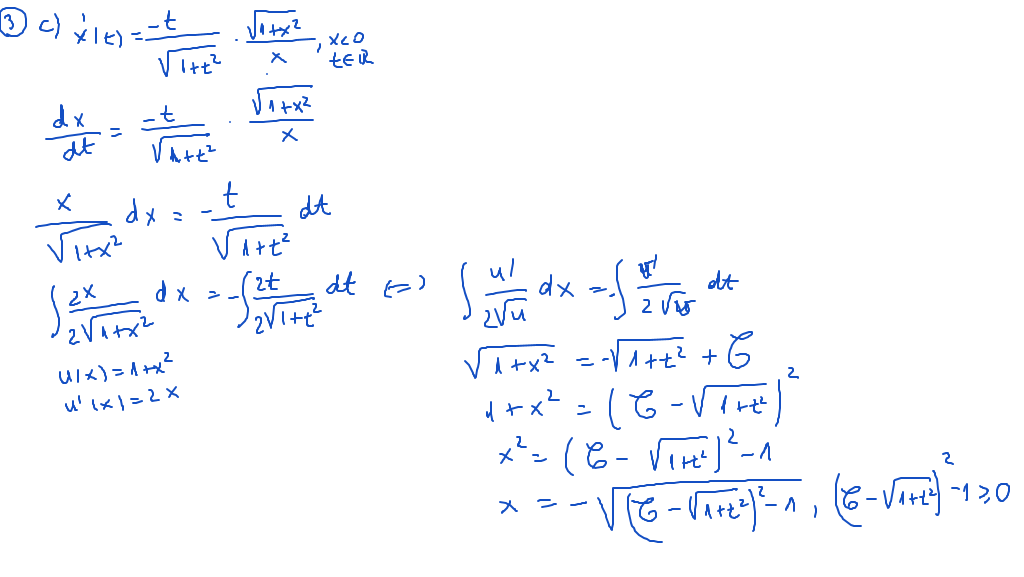 ③ c) x'(t) = -t/√(1+t²) · √(1+x²)/x, x<0 t∈ℝ
dx/dt = -t/√(1+t²) · √(1+x²)/x
x/√(1+x²) dx = - t/√(1+t²) dt
∫ 2x/(2√(1+x²)) dx = -∫ 2t/(2√(1+t²)) dt ⟺ ∫ u'/(2√u) dx = -∫ v'/(2√v) dt
u(x) = 1+x²
u'(x) = 2x
√(1+x²) = -√(1+t²) + C
1+x² = (C - √(1+t²))²
x² = (C - √(1+t²))² - 1
x = -√((C - √(1+t²))² - 1), (C - √(1+t²))² - 1 ≥ 0